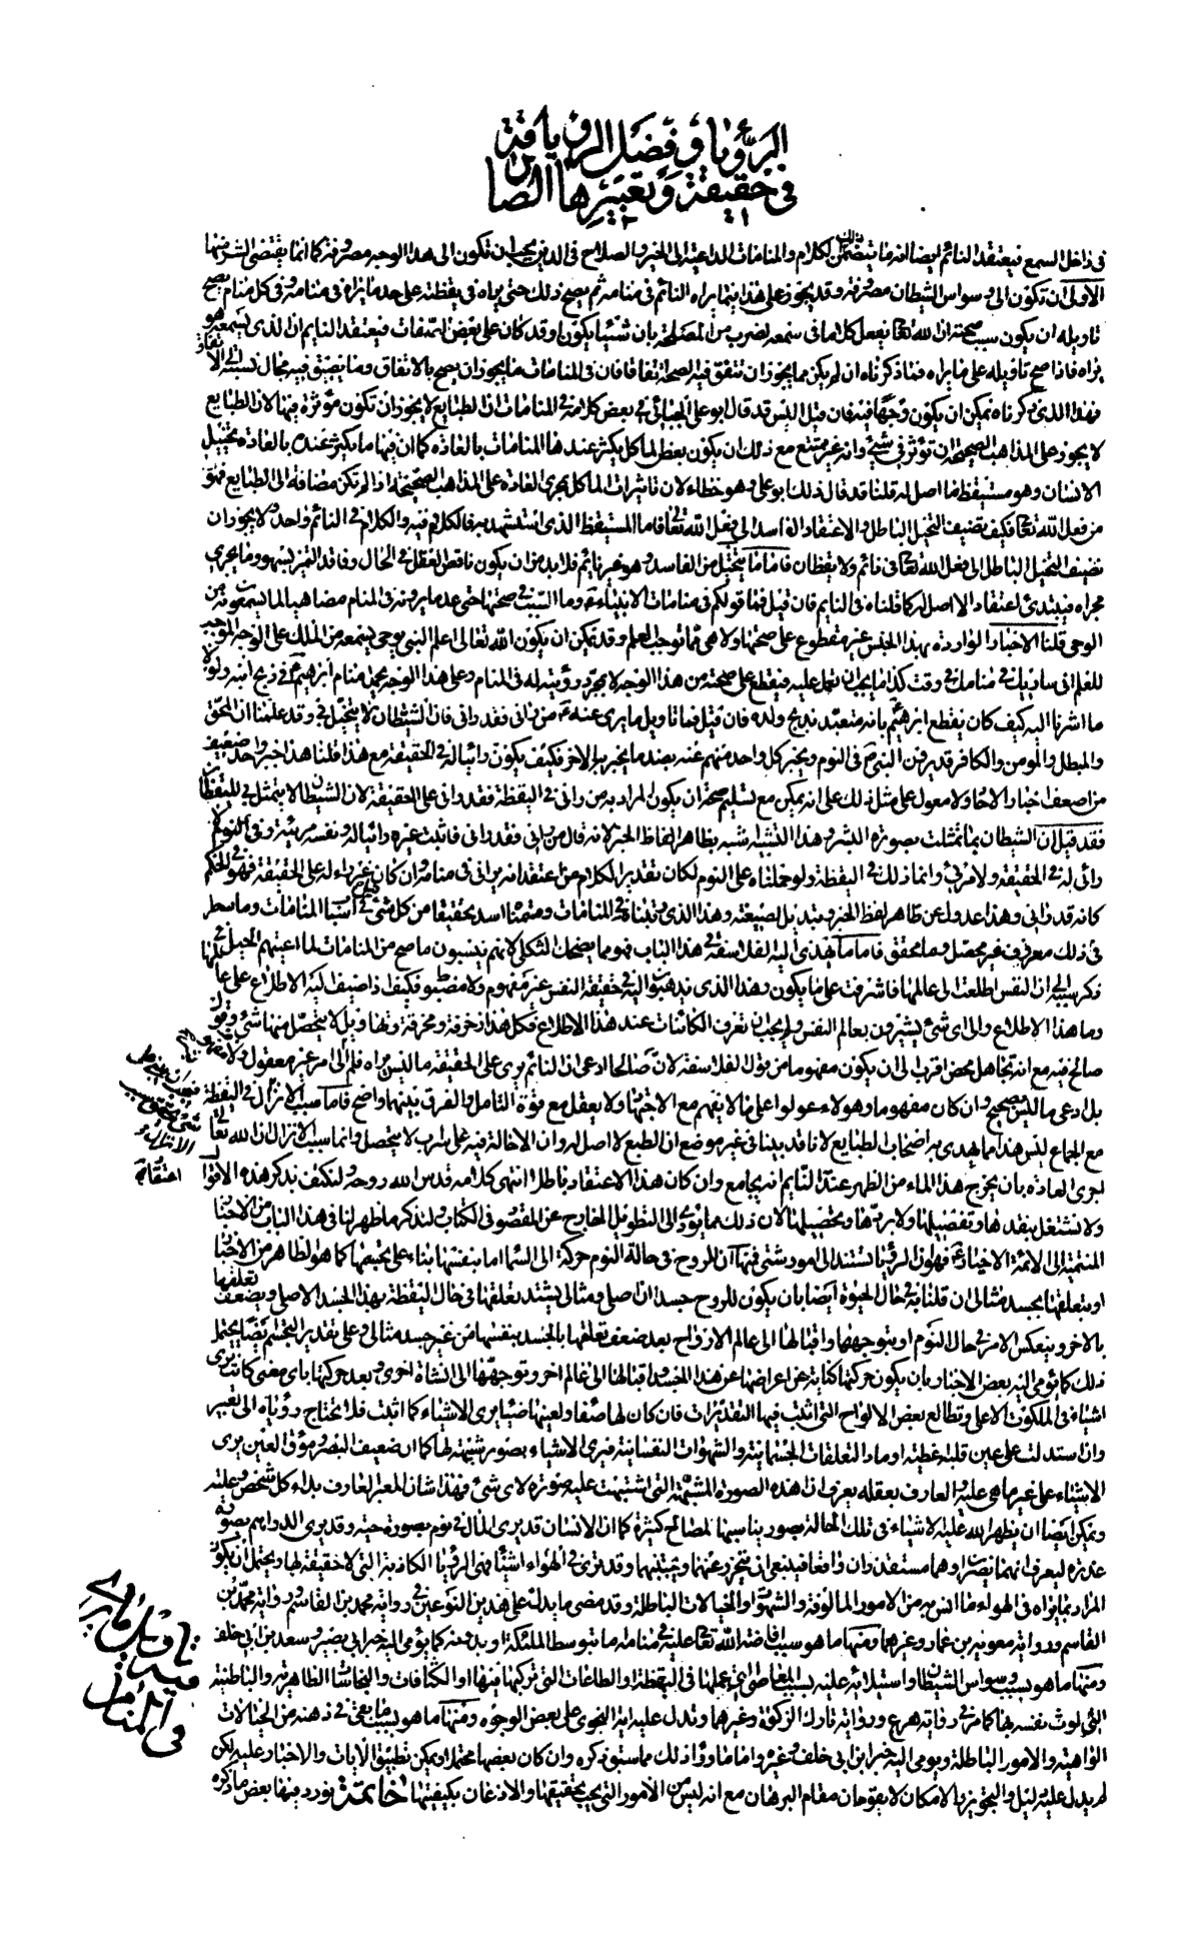 في داخل السمع فيعتقد النائم ايضا انه ما يتضمن ذلك الكلام والمنامات الداعية الى الخير والصلاح في الدين يجب ان تكون الى هذا الوجه مصروفة كما ان ما يقتضى الشر منها
الاولى ان تكون الى وسواس الشيطان مصروفة وقد يجوز على هذا فيما يراه النائم في منامه ثم يصح ذلك حتى يراه في يقظته على حد ما يراه في منامه وفي كل منام يصح
تاويله ان يكون سبب صحته ان الله تعالى يفعل كلاما في سمعه لضرب من المصلحة بان شيئا يكون او قد كان على بعض الصفات فيعتقد النايم ان الذى يسمعه هو
يراه فاذا صح تاويله على ما يراه فما ذكرناه ان لم يكن مما يجوز ان تتفق فيه الصحة اتفاقا فان في المنامات ما يجوز ان يصح بالاتفاق وما يضيق فيه مجال نسبته الى الاتفاق
فهذا الذى ذكرناه يمكن ان يكون وجها فيه فان قيل اليس قد قال ابو على الجبائى في بعض كلامه في المنامات ان الطبايع لا يجوز ان تكون مؤثرة فيها لان الطبايع
لا يجوز على المذاهب الصحيحة ان تؤثر في شىء وانه غير ممتنع مع ذلك ان يكون بعض المآكل يكثر عندها المنامات بالعادة كما ان فيها ما يكثر عنده بالعادة تخييل
الانسان وهو مستيقظ ما لا اصل له قلنا قد قال ذلك ابو على وهو خطاء لان تاثيرات المآكل بمجرى العادة على المذاهب الصحيحة اذا لم تكن مضافة الى الطبايع فهو
من فعل الله تعالى فكيف نضيف التخيل الباطل والاعتقاد الفاسد الى فعل الله تعالى فاما المستيقظ الذى استشهد به فالكلام فيه والكلام في النائم واحد ولا يجوز ان
نضيف التخيل الباطل الى فعل الله تعالى في نائم ولا يقظان فاما ما يتخيل من الفاسد وهو غير نايم فلا بد من ان يكون ناقص العقل في الحال وفاقد التمييز بسهو وما يجرى
مجراه فيبتدى اعتقادا لا اصل له كما قلناه في النايم فان قيل فما قولكم في منامات الانبياء ع وما السبب في صحتها حتى عد ما يرونه في المنام مضاهيا لما يسمعونه من
الوحى قلنا الاخبار الواردة بهذا الجنس غير مقطوع على صحتها ولا هى مما توجب العلم وقد يمكن ان يكون الله تعالى اعلم النبى بوحى يسمعه من الملك على الوجه الموجب
للعلم انى ساريك في منامك في وقت كذا ما يجب ان تعمل عليه فيقطع على صحته من هذا الوجه لا بمجرد رؤيته له في المنام وعلى هذا الوجه يحمل منام ابرهيم ع في ذبح ابنه ولولا
ما اشرنا اليه كيف كان يقطع ابرهيم بانه متعبد بذبح ولده فان قيل فما تاويل ما يروى عنه ع من رانى فقد رانى فان الشيطان لا يتخيل بى وقد علمنا ان المحق
والمبطل والمومن والكافر قد يرون النبى ص في النوم ويخبر كل واحد منهم عنه بضد ما يخبر به الاخر فكيف يكون رائيا له في الحقيقة مع هذا قلنا هذا خبر واحد ضعيف
من اضعف اخبار الاحاد ولا معول على مثل ذلك على انه يمكن مع تسليم صحته ان يكون المراد به من رانى في اليقظة فقد رانى على الحقيقة لان الشيطان لا يتمثل بى لليقظان
فقد قيل ان الشيطان ربما تمثلت بصورة البشر وهذا التشبيه اشبه بظاهر الفاظ الخبر لانه قال من رانى فقد رانى فاثبت غيره رائيا له ونفسه مرئية وفى النوم لا
رائى له في الحقيقة ولا مرئى وانما ذلك في اليقظة ولو حملناه على النوم لكان تقدير الكلام من اعتقد انه يرانى في منامه وان كان غير راء له على الحقيقة فهو في الحكم
كانه قد رانى وهذا عدول عن ظاهر لفظ الخبر وتبديل لصيغته وهذا الذى رتبناه في المنامات وقسمناه اسد تحقيقا من كل شىء قيل في اسباب المنامات وما سطر
في ذلك معروف غير محصل ولا محقق فاما ما يهذى اليه الفلاسفة في هذا الباب فهو مما يضحك الثكلى لانهم ينسبون ما صح من المنامات لما اعيتهم الحيل في
ذكر سببه الى ان النفس اطلعت الى عالمها فاشرفت على ما يكون وهذا الذى يذهبون اليه في حقيقة النفس غير مفهوم ولا مضبوط فكيف اذا اضيف اليه الاطلاع على عالمها
وما هذا الاطلاع والى اى شىء يشيرون بعالم النفس ولم يجب ان تعرف الكائنات عند هذا الاطلاع فكل هذا زخرفة ومخرقة وتهاويل لا يتحصل منها شىء وقول
صالح فيه مع انه تجاهل محض اقرب الى ان يكون مفهوما من قول الفلاسفة لان صالحا ادعى ان النائم يرى على الحقيقة ما ليس يراه فلم يشر الى امر غير معقول ولا مفهوم
بل ادعى ما ليس بصحيح وان كان مفهوما وهولاء عولوا على ما لا يفهم مع الاجتهاد ولا يعقل مع قوة التامل والفرق بينهما واضح فاما سبب الانزال في اليقظة
مع الجماع ليس هذا مما يهدى به اصحاب الطبايع لانا قد بينا في غير موضع ان الطبع لا اصل له وان الاحالة فيه على سراب لا يتحصل وانما سبب الانزال ان الله تعالى
اجرى العادة بان يخرج هذا الماء من الظهر عند اعتقاد النايم انه يجامع وان كان هذا الاعتقاد باطلا انتهى كلامه قدس الله روحه ولنكتف بذكر هذه الاقوال
ولا نشتغل بنقدها وتفصيلها ولا بردها وتحصيلها لان ذلك مما يؤدى الى التطويل الخارج عن المقصود في الكتاب ولنذكر ما ظهر لنا في هذا الباب من الاخبار
المنتمية الى الائمة الاخيار ع فهو ان الرؤيا تستند الى امور شتى فمنها ان للروح في حالة النوم حركة الى السماء اما بنفسها بناء على تجسمها كما هو الظاهر من الاخبار
او بتعلقها بجسد مثالى ان قلنا به في حال الحيوة ايضا بان يكون للروح جسدان اصلى ومثالى يشتد تعلقها في حال اليقظة بهذا الجسد الاصلى ويضعف تعلقها
بالاخر وينعكس الامر في حال النوم او بتوجهها واقبالها الى عالم الارواح بعد ضعف تعلقها بالجسد بنفسها من غير جسد مثالى وعلى تقدير التجسم ايضا يحتمل
ذلك كما يومى اليه بعض الاخبار بان يكون حركتها كناية عن اعراضها عن هذا الجسد واقبالها الى عالم اخر وتوجهها الى نشاة اخرى وبعد حركتها باى معنى كانت ترى
اشياء في الملكوت الاعلى وتطالع بعض الالواح التى اثبتت فيها التقديرات فان كان لها صفاء ولعينها ضياء يرى الاشياء كما اثبتت فلا يحتاج رؤياه الى تعبير
وان استدلت على عين قلبه اغطية ارماد التعلقات الجسمانية والشهوات النفسانية فيرى الاشياء بصور شبيهة لها كما ان ضعيف البصر ومؤف العين يرى
الاشياء على غير ما هى عليه والعارف بعقله يعرف ان هذه الصورة المشبهة التى اشتبهت عليه صورة لاى شىء فهذا شان المعبر العارف بداء كل شخص وعلته
ويمكن ايضا ان يظهر الله عليه الاشياء في تلك الحالة بصور يناسبها لمصالح كثيرة كما ان الانسان قد يرى المال في نومه بصورة حية وقد يرى الدراهم بصورة
عذرة ليعرف انهما يضران وهما مستقذران واقعا فينبغى ان يتحرز عنهما ويجتنبهما وقد ترى في الهواء اشياء فهى الرؤيا الكاذبة التى لا حقيقة لها ويحتمل ان يكون
المراد بما يراه في الهواء ما انس به من الامور المالوفة والشهوات والخيالات الباطلة وقد مضى ما يدل على هذين النوعين في رواية محمد بن القاسم ورواية محمد بن
القاسم ورواية معوية بن عمار وغيرهما ومنها ما هو بسبب افاضة الله تعالى عليه في منامه اما بتوسط الملئكة او بدونه كما يؤمى اليه خبر ابى بصير وسعد بن ابى خلف
ومنها ما هو بسبب وسواس الشيطان واستيلائه عليه بسبب المعاصى التى عملها في اليقظة او الطاعات التى تركها فيها او الكثافات والنجاسات الظاهرية والباطنية
التى لوث نفسه بها كما مر في رواية هزع ورواية تارك الزكوة وغيرهما وتدل عليه اية النجوى على بعض الوجوه ومنها ما هو بسبب ما بقى في ذهنه من الخيالات
الواهية والامور الباطلة ويومى اليه خبر ابن ابى خلف وغيره واما ما وراء ذلك مما سبق ذكره وان كان بعضها محتملا ويمكن تطبيق الايات والاخبار عليه لكن
لم يدل عليه دليل والتجويز والامكان لا يقومان مقام البرهان مع انه ليس من الامور التى يجب تحقيقها والاذعان بكيفيتها خاتمة نورد فيها بعض ما ذكره
تاويل ما يرى
فيه
في المنام